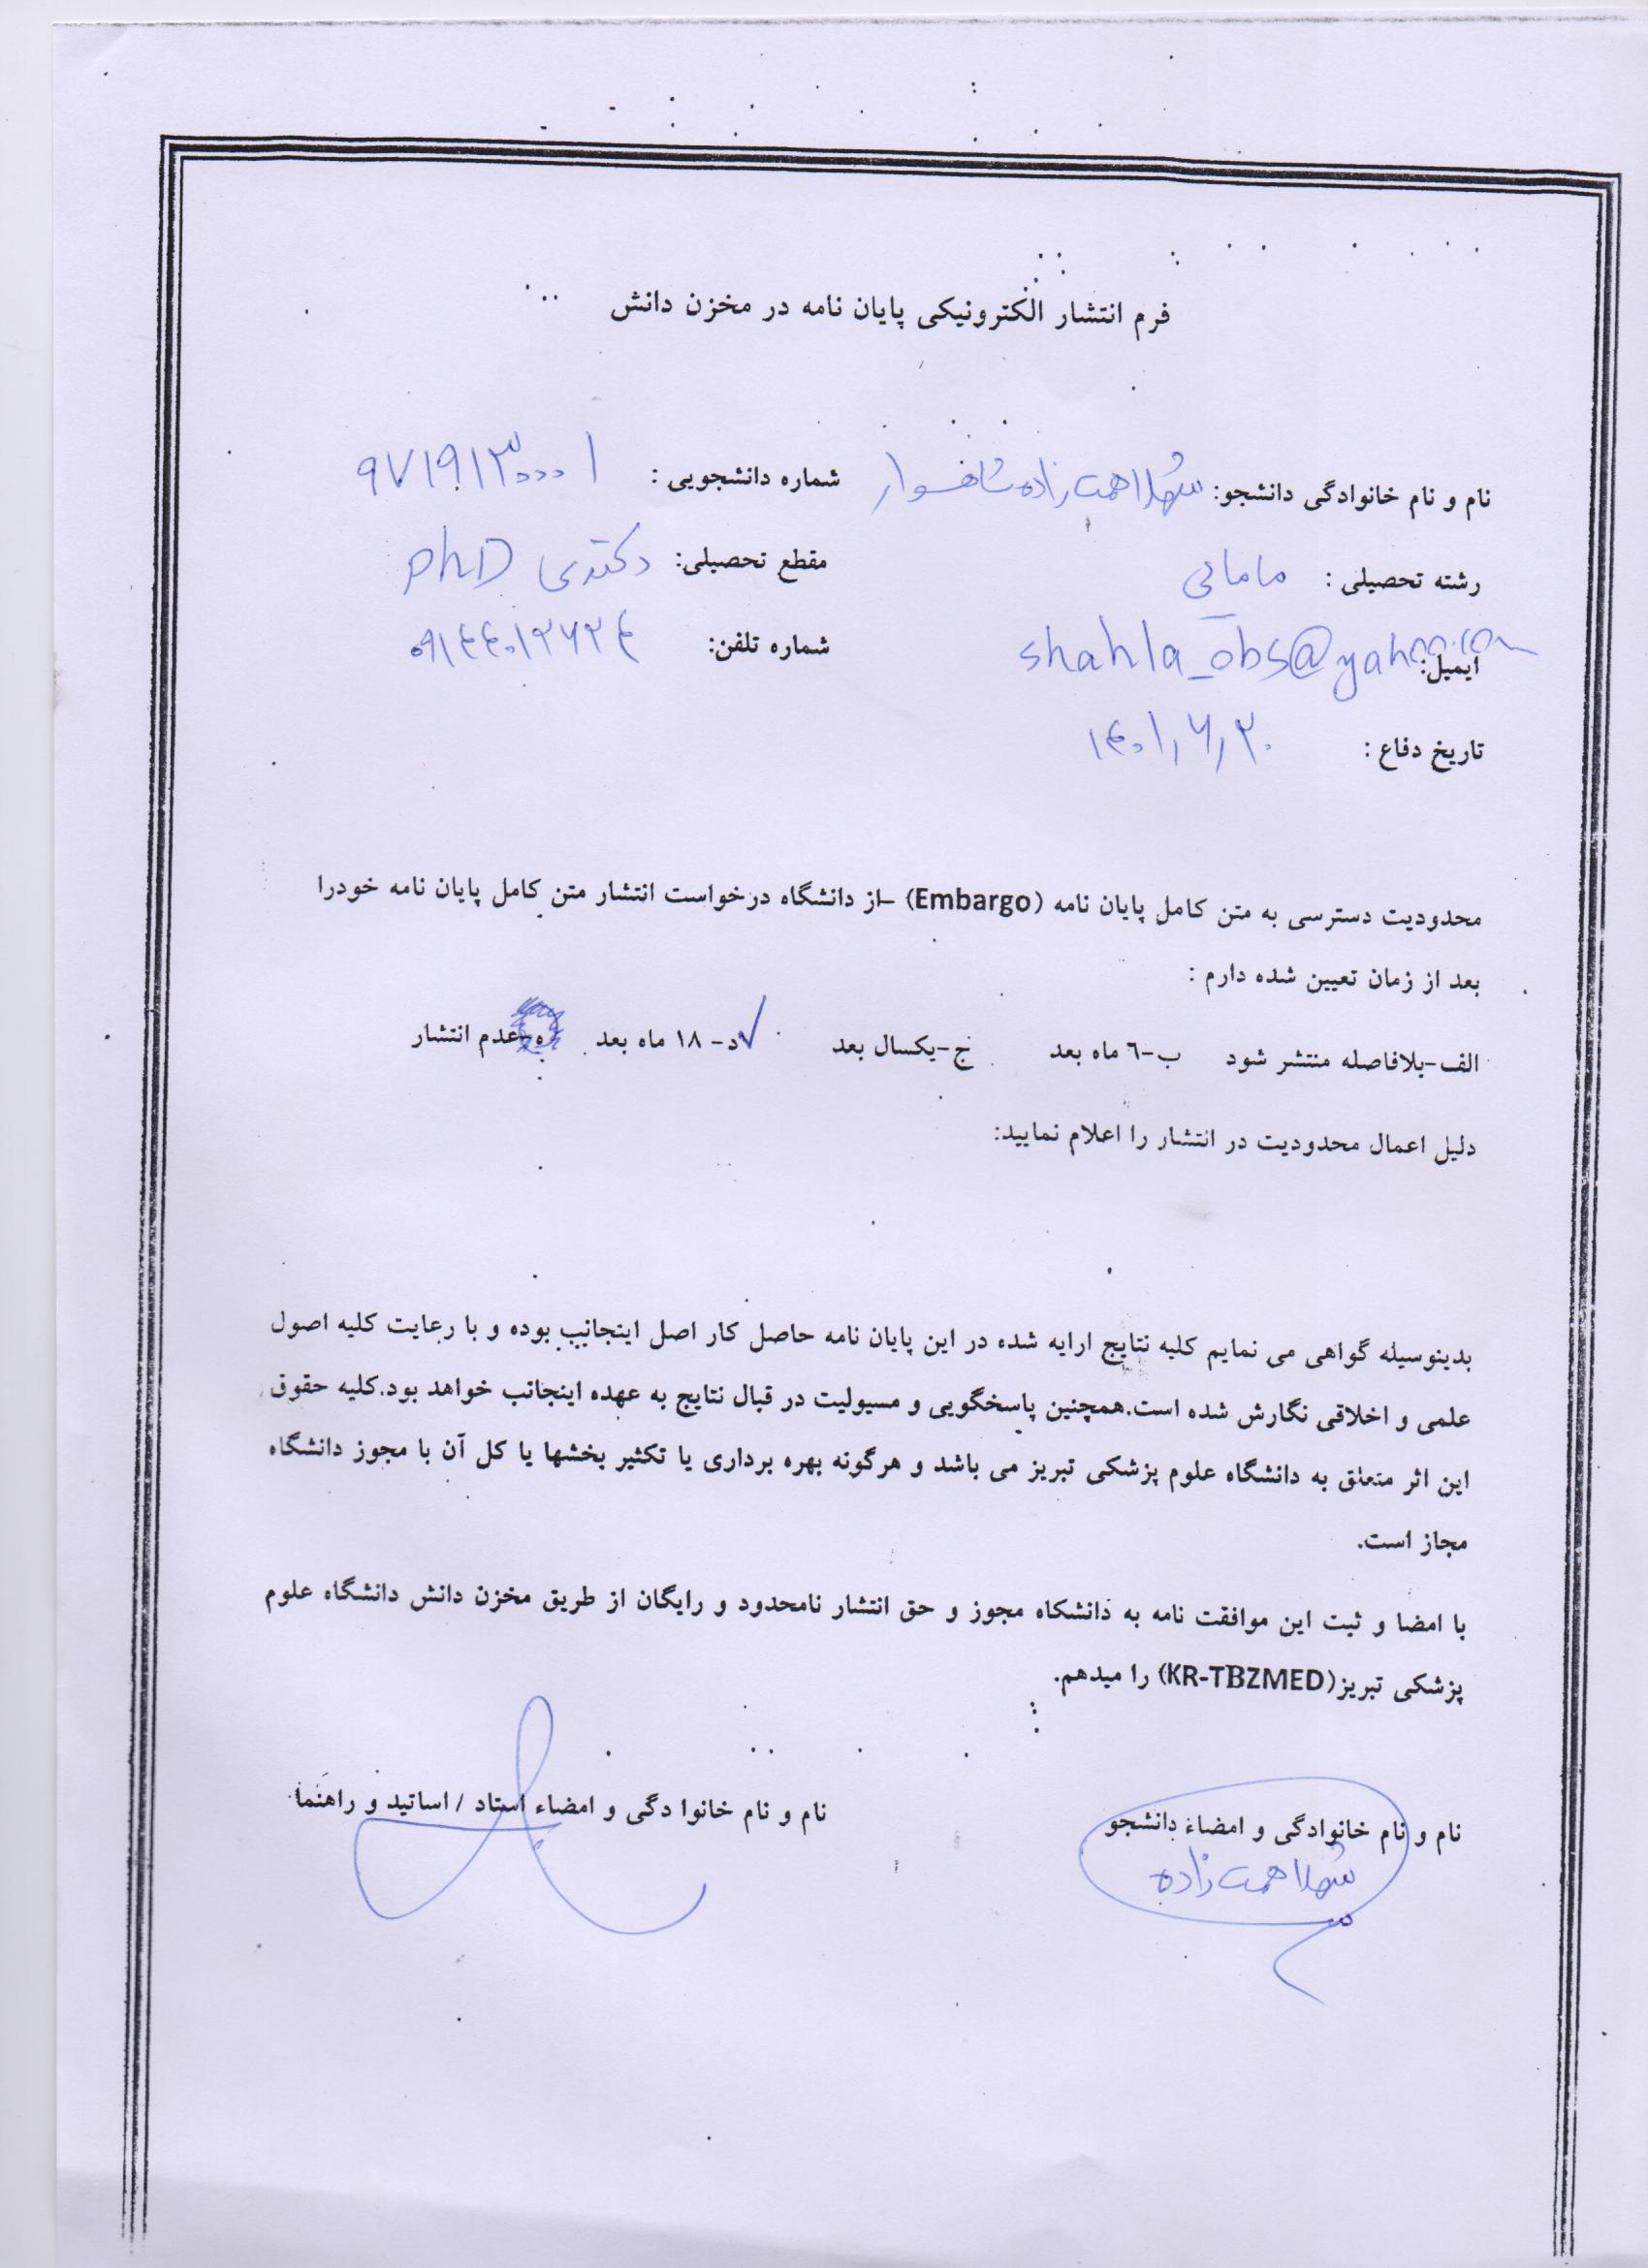 فرم انتشار الکترونیکی پایان نامه در مخزن دانش
نام و نام خانوادگی دانشجو: شهلا همت زاده شاهسوار شماره دانشجویی : ۹۷۱۹۱۳۰۰۰۱
رشته تحصیلی : مامائی مقطع تحصیلی: دکتری PhD
ایمیل: shahla_obs@yahoo.com شماره تلفن: ۰۹۱۴۴۰۱۲۶۲۴
تاریخ دفاع : ۱۴۰۱,۶,۲۰
محدودیت دسترسی به متن کامل پایان نامه (Embargo) –از دانشگاه درخواست انتشار متن کامل پایان نامه خودرا
بعد از زمان تعیین شده دارم :
الف-بلافاصله منتشر شود ب-٦ ماه بعد ج-یکسال بعد ✓د- ١٨ ماه بعد ه-عدم انتشار
دلیل اعمال محدودیت در انتشار را اعلام نمایید:
بدینوسیله گواهی می نمایم کلیه نتایج ارایه شده در این پایان نامه حاصل کار اصل اینجانب بوده و با رعایت کلیه اصول
علمی و اخلاقی نگارش شده است.همچنین پاسخگویی و مسیولیت در قبال نتایج به عهده اینجانب خواهد بود.کلیه حقوق
این اثر متعلق به دانشگاه علوم پزشکی تبریز می باشد و هرگونه بهره برداری یا تکثیر بخشها یا کل آن با مجوز دانشگاه
مجاز است.
با امضا و ثبت این موافقت نامه به دانشکاه مجوز و حق انتشار نامحدود و رایگان از طریق مخزن دانش دانشگاه علوم
پزشکی تبریز(KR-TBZMED) را میدهم.
نام و نام خانوادگی و امضاء دانشجو نام و نام خانوا دگی و امضاء استاد / اساتید و راهنما
شهلا همت زاده